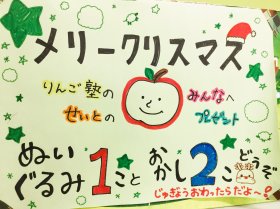 メリークリスマス
りんご塾の みんなへ
せいとの プレゼント
ぬいぐるみ1こと おかし2こ どうぞ
じゅぎょうおわったらだよ〜!